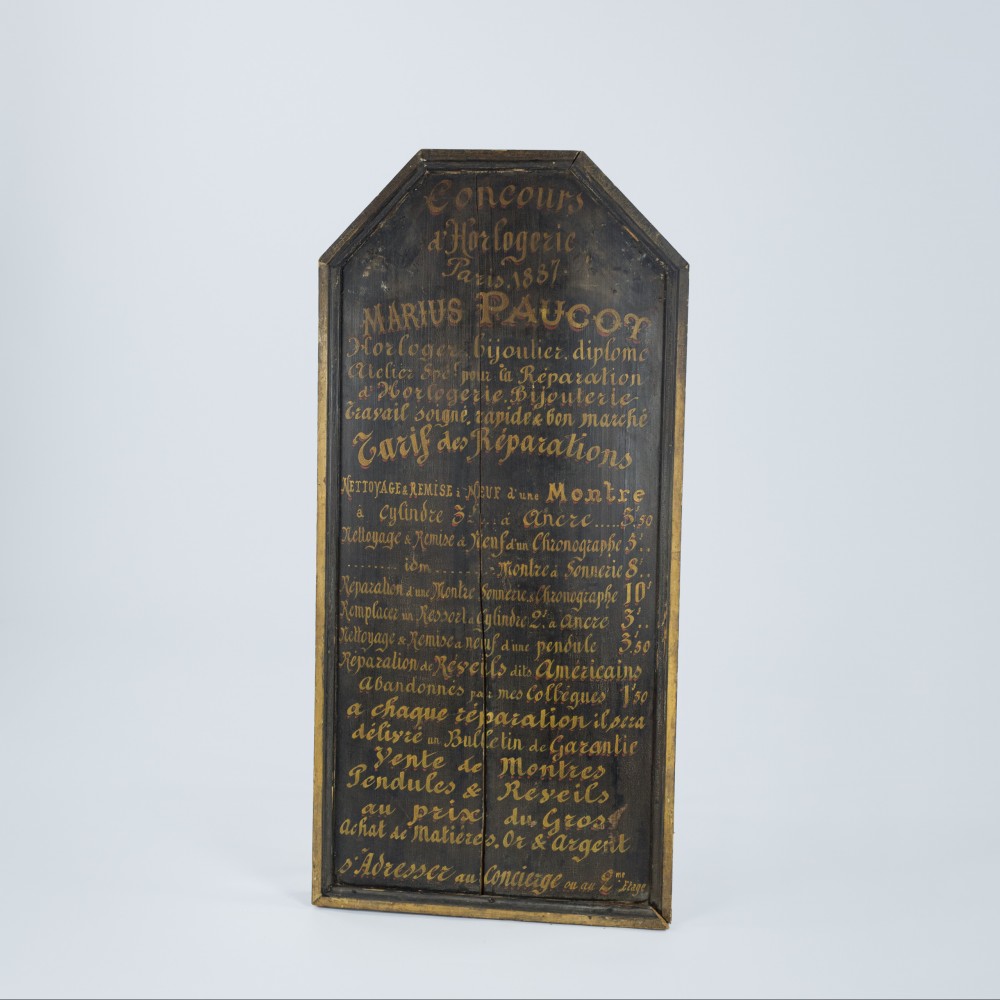 Concours
d'Horlogerie
Paris. 1887.
MARIUS PAUCOT
Horloger. bijoutier. diplomé
Atelier Spél pour la Réparation
d'Horlogerie. Bijouterie
Travail soigné. rapide & bon marché
Tarif des Réparations
NETTOYAGE & REMISE à NEUF d'une Montre
à Cylindre 3f... à Ancre.....3f.50
Nettoyage & Remise à Neuf d'un Chronographe 5f..
........ idm .......... Montre à Sonnerie 8f..
Réparation d'une Montre Sonnerie & Chronographe 10f
Remplacer un Ressort à Cylindre 2f. à Ancre 3f..
Nettoyage & Remise à neuf d'une pendule 3f.50
Réparation de Réveils dits Américains
Abandonnés par mes Collégues 1f.50
a chaque réparation il sera
délivré un Bulletin de Garantie
Vente de Montres
Pendules & Réveils
au prix du Gros
Achat de Matiéres. Or & Argent
s'Adresser au Concierge ou au 2me Etage